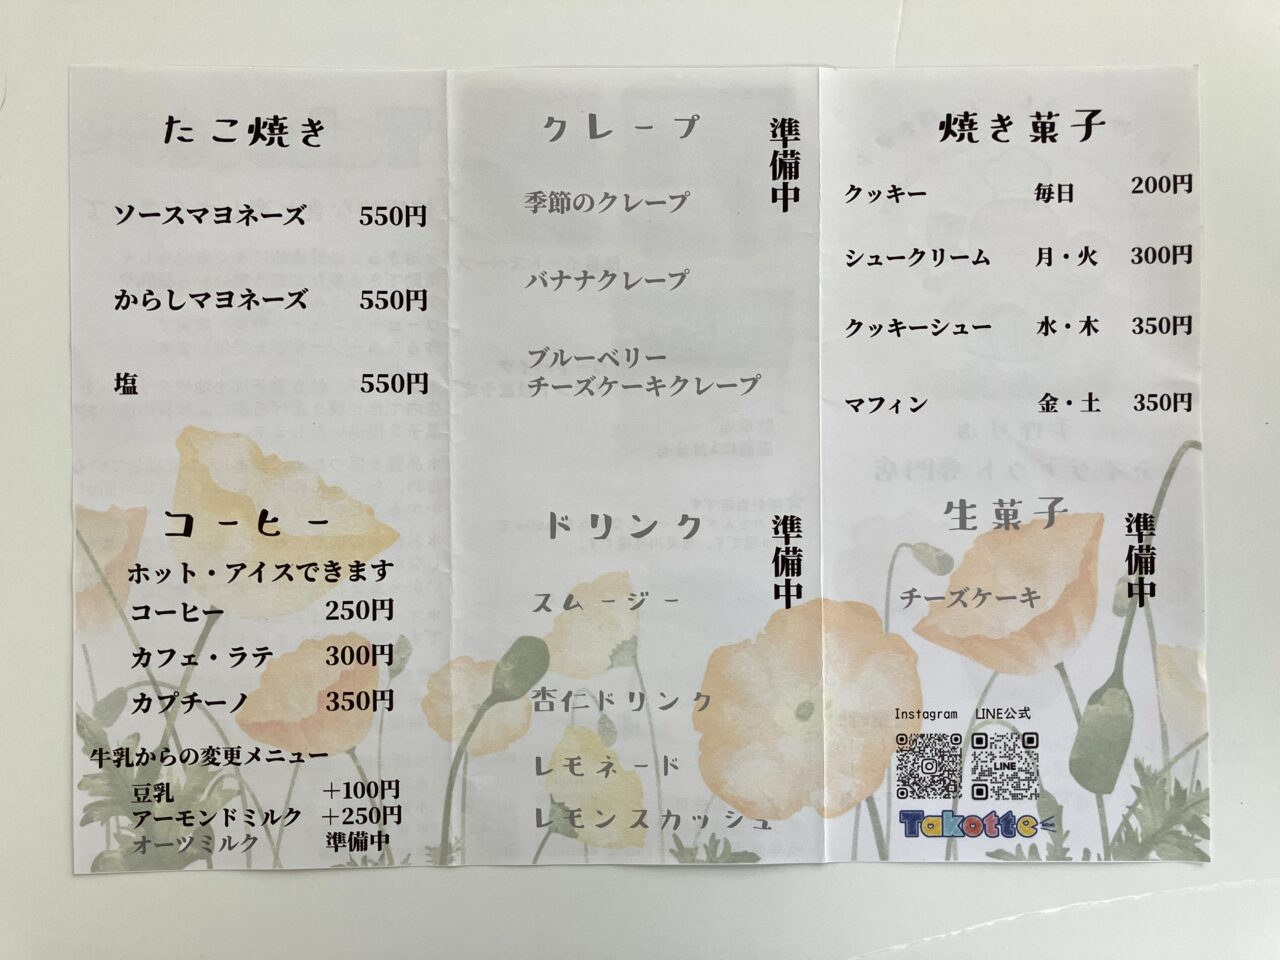 たこ焼き
ソースマヨネーズ 550円
からしマヨネーズ 550円
塩 550円
コーヒー
ホット・アイスできます
コーヒー 250円
カフェ・ラテ 300円
カプチーノ 350円
牛乳からの変更メニュー
豆乳 +100円
アーモンドミルク +250円
オーツミルク 準備中
クレープ
準備中
季節のクレープ
バナナクレープ
ブルーベリー
チーズケーキクレープ
ドリンク
準備中
スムージー
杏仁ドリンク
レモネード
レモンスカッシュ
焼き菓子
クッキー 毎日 200円
シュークリーム 月・火 300円
クッキーシュー 水・木 350円
マフィン 金・土 350円
生菓子
準備中
チーズケーキ
Instagram LINE公式
LINE
Takotte